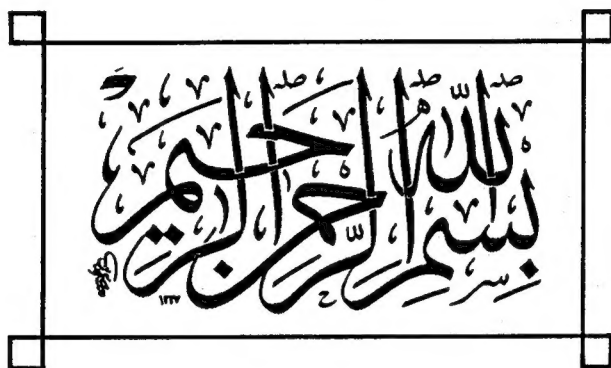 بِسْمِ اللّٰهِ الرَّحْمٰنِ الرَّحِيمِ
١٣٣٧